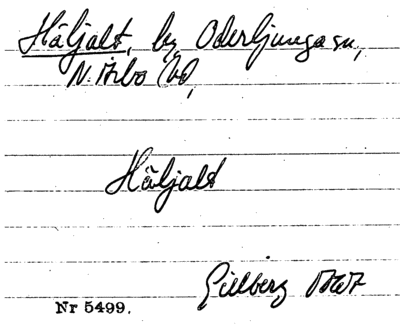 Håljalt, by Oderljunga sn,
N. Åsbo hd,
Håljalt
Gillberg
Nr 5499.